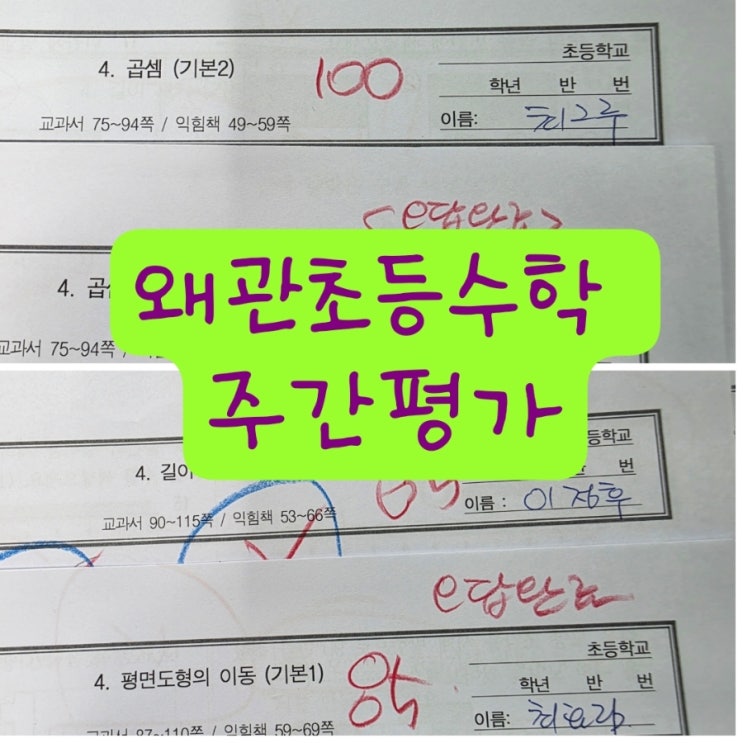 초등학교
4. 곱셈 (기본2)
100
학년 반 번
교과서 75~94쪽 / 익힘책 49~59쪽
이름: 최그루
<오답완료>
왜관초등수학
4. 곱
교과서 75~94쪽
주간평가
등학교
4. 길이
번
교과서 90~115쪽 / 익힘책 53~66쪽
이름 : 이정후
오답완료
초등학교
4. 평면도형의 이동 (기본1)
학년 반 번
이름:
교과서 87~110쪽 / 익힘책 59~69쪽